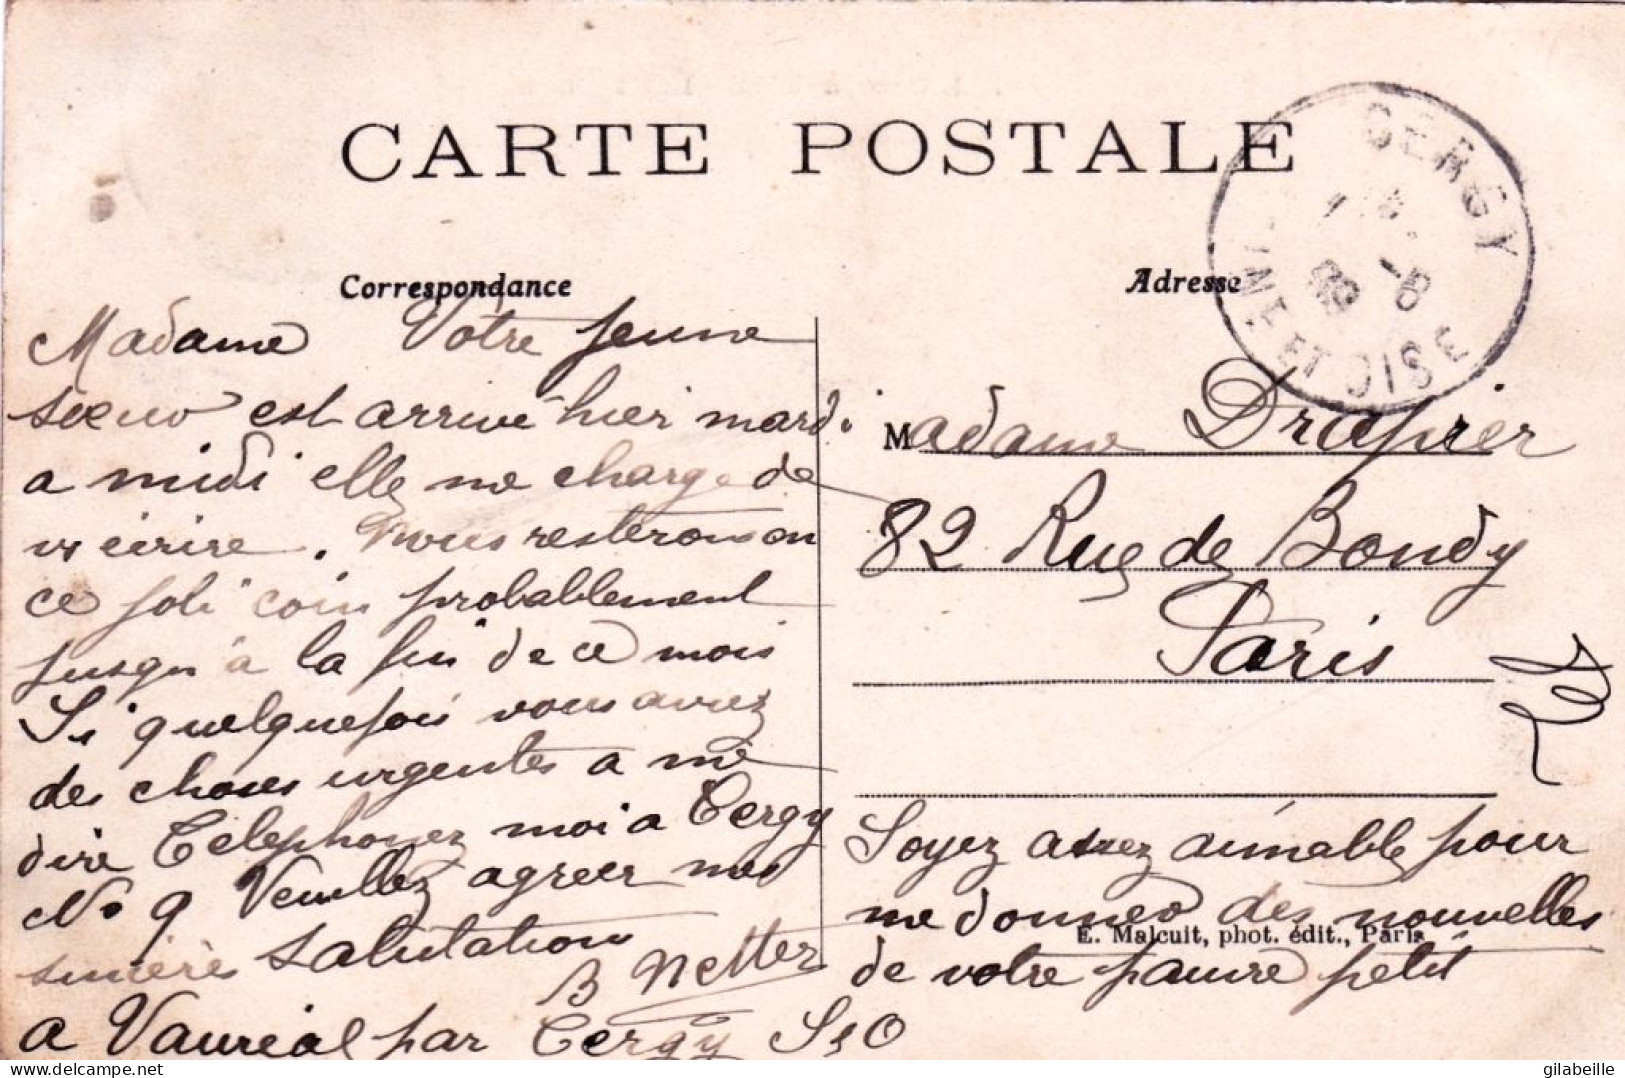 CARTE POSTALE
Correspondance
Adresse
CERGY
SEINE ET OISE
Madame Votre jeune
soeur est arrivé hier mardi
a midi elle me charge de
vs écrire. Nous resterons en
ce joli coin probablement
jusqu'à la fin de ce mois
Si quelquefois vous aviez
des choses urgentes a me
dire Télephonez moi a Cergy
No 9 Veuillez agréer mes
sincères salutations
B Netter
a Vauréal par Cergy S&O
Madame Drapier
82 Rue de Bondy
Paris
Soyez assez aimable pour
me donner des nouvelles
E. Malcuit, phot. édit., Paris
de votre pauvre petit
gilabeille